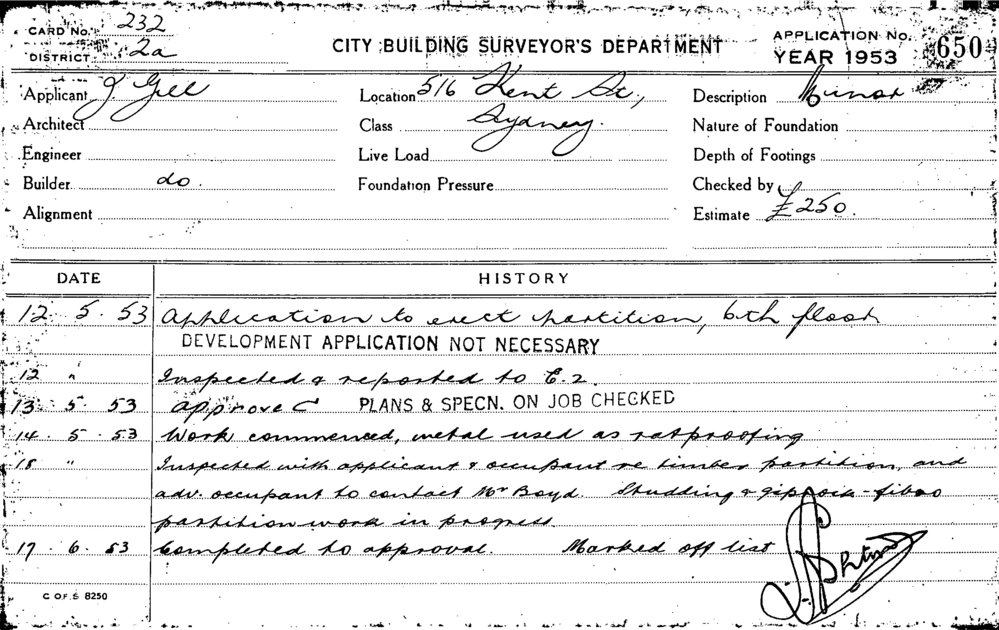 CARD No. 232
DISTRICT 2a
CITY BUILDING SURVEYOR'S DEPARTMENT
APPLICATION No. 650
YEAR 1953
Applicant J Gell
Location 516 Kent St.,
Description Minor
Architect
Class Sydney.
Nature of Foundation
Engineer
Live Load
Depth of Footings
Builder do.
Foundation Pressure
Checked by
Alignment
Estimate £250.
DATE HISTORY
12. 5. 53 Application to erect partition, 6th floor
DEVELOPMENT APPLICATION NOT NECESSARY
12 " Inspected & reported to E.2.
13. 5. 53 approve C PLANS & SPECN. ON JOB CHECKED
14. 5. 53 Work commenced, metal used as ratproofing
18 " Inspected with applicant & occupant re timber partition, and
adv. occupant to contact Mr Boyd. Studding & giprock-fibro
partition work in progress.
17. 6. 53 Completed to approval. Marked off list
C OF S 8250